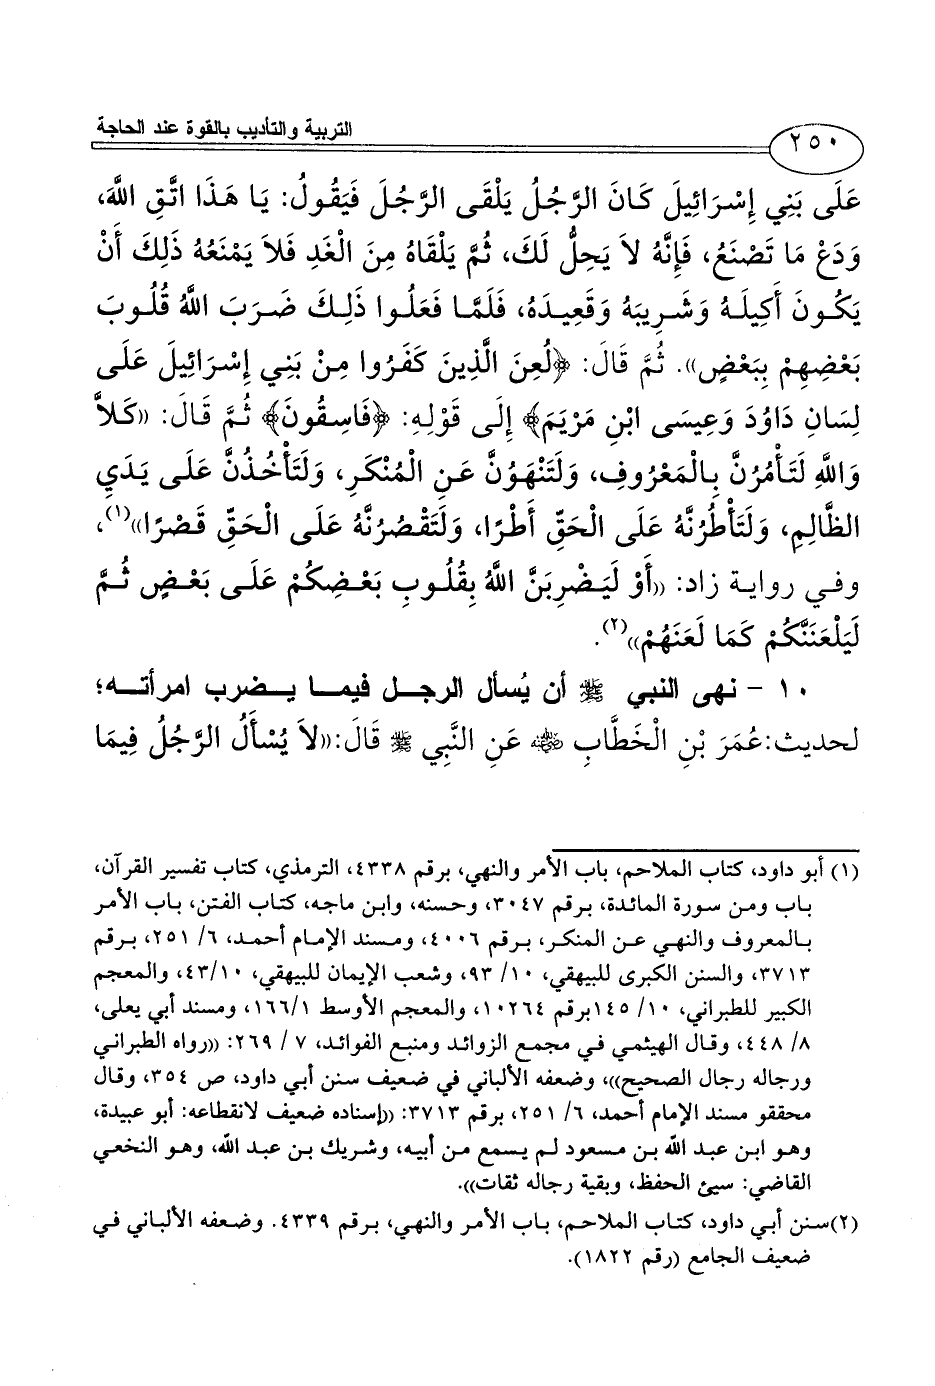 ٢٥٠ التربية والتأديب بالقوة عند الحاجة
عَلَى بَنِي إِسْرَائِيلَ كَانَ الرَّجُلُ يَلْقَى الرَّجُلَ فَيَقُولُ: يَا هَذَا اتَّقِ اللَّهَ،
وَدَعْ مَا تَصْنَعُ، فَإِنَّهُ لاَ يَحِلُّ لَكَ، ثُمَّ يَلْقَاهُ مِنَ الْغَدِ فَلاَ يَمْنَعُهُ ذَلِكَ أَنْ
يَكُونَ أَكِيلَهُ وَشَرِيبَهُ وَقَعِيدَهُ، فَلَمَّا فَعَلُوا ذَلِكَ ضَرَبَ اللَّهُ قُلُوبَ
بَعْضِهِمْ بِبَعْضٍ)). ثُمَّ قَالَ: ﴿لُعِنَ الَّذِينَ كَفَرُوا مِنْ بَنِي إِسْرَائِيلَ عَلَى
لِسَانِ دَاوُدَ وَعِيسَى ابْنِ مَرْيَمَ﴾ إِلَى قَوْلِهِ: ﴿فَاسِقُونَ﴾ ثُمَّ قَالَ: ((كَلاَّ
وَاللَّهِ لَتَأْمُرُنَّ بِالْمَعْرُوفِ، وَلَتَنْهَوُنَّ عَنِ الْمُنْكَرِ، وَلَتَأْخُذُنَّ عَلَى يَدَيِ
الظَّالِمِ، وَلَتَأْطُرُنَّهُ عَلَى الْحَقِّ أَطْرًا، وَلَتَقْصُرُنَّهُ عَلَى الْحَقِّ قَصْرًا))(١)،
وفي رواية زاد: ((أَوْ لَيَضْرِبَنَّ اللَّهُ بِقُلُوبِ بَعْضِكُمْ عَلَى بَعْضٍ ثُمَّ
لَيَلْعَنَنَّكُمْ كَمَا لَعَنَهُمْ))(٢).
١٠ - نهى النبي ﷺ أن يُسأل الرجل فيما يضرب امرأته؛
لحديث: عُمَرَ بْنِ الْخَطَّابِ ؓ عَنِ النَّبِي ﷺ قَالَ: ((لاَ يُسْأَلُ الرَّجُلُ فِيمَا
(١) أبو داود، كتاب الملاحم، باب الأمر والنهي، برقم ٤٣٣٨، الترمذي، كتاب تفسير القرآن،
باب ومن سورة المائدة، برقم ٣٠٤٧، وحسنه، وابن ماجه، كتاب الفتن، باب الأمر
بالمعروف والنهي عن المنكر، برقم ٤٠٠٦، ومسند الإمام أحمد، ٦/ ٢٥١، برقم
٣٧١٣، والسنن الكبرى للبيهقي، ١٠/ ٩٣، وشعب الإيمان للبيهقي، ١٠/ ٤٣، والمعجم
الكبير للطبراني، ١٠/ ١٤٥برقم ١٠٢٦٤، والمعجم الأوسط ١/ ١٦٦، ومسند أبي يعلى،
٨/ ٤٤٨، وقال الهيثمي في مجمع الزوائد ومنبع الفوائد، ٧ / ٢٦٩: ((رواه الطبراني
ورجاله رجال الصحيح))، وضعفه الألباني في ضعيف سنن أبي داود، ص ٣٥٤، وقال
محققو مسند الإمام أحمد، ٦/ ٢٥١، برقم ٣٧١٣: ((إسناده ضعيف لانقطاعه: أبو عبيدة،
وهو ابن عبد الله بن مسعود لم يسمع من أبيه، وشريك بن عبد الله، وهو النخعي
القاضي: سيئ الحفظ، وبقية رجاله ثقات)).
(٢)سنن أبي داود، كتاب الملاحم، باب الأمر والنهي، برقم ٤٣٣٩. وضعفه الألباني في
ضعيف الجامع (رقم ١٨٢٢).